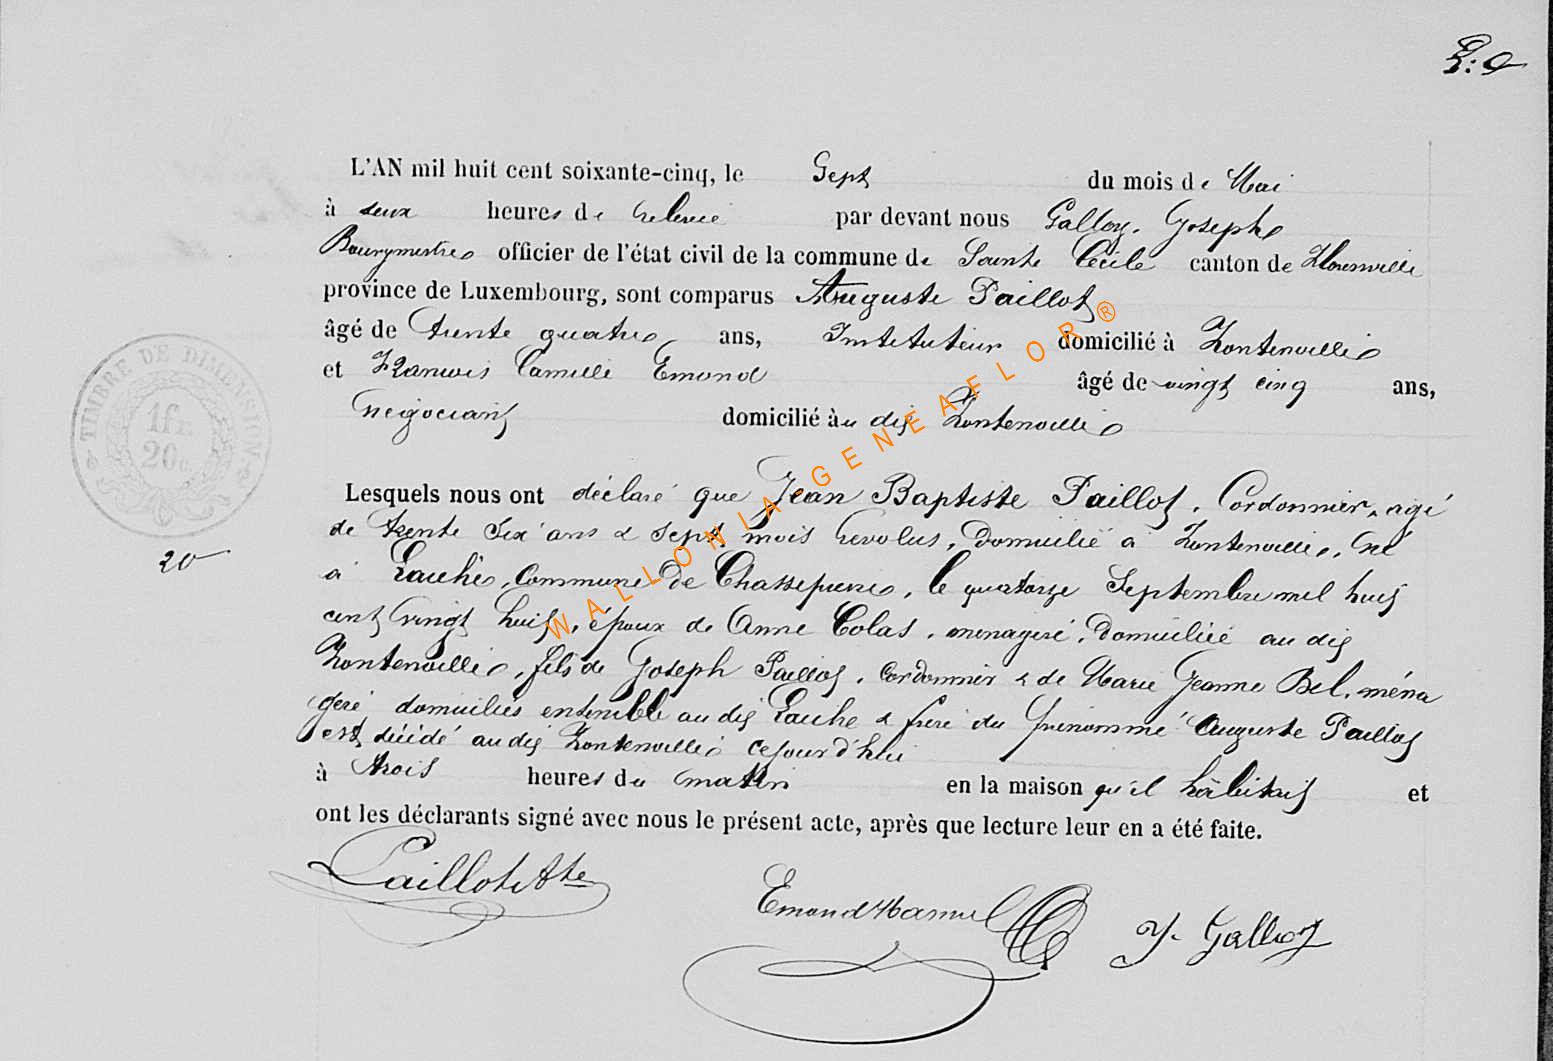 L'AN mil huit cent soixante-cinq, le Sept du mois de Mai
à deux heures de relevée par devant nous Galloy, Joseph
Bourgmestre officier de l'état civil de la commune de Sainte Cécile canton de Florenville
province de Luxembourg, sont comparus Auguste Paillot
âgé de trente quatre ans, Instituteur domicilié à Fontenoille
et François Camille Emond âgé de vingt cinq ans,
négociant domicilié au dit Fontenoille
Lesquels nous ont déclaré que Jean Baptiste Paillot, Cordonnier, agé
de trente six ans & sept mois revolus, domicilié à Fontenoille, né
à Laiche, Commune de Chassepierre, le quatorze Septembre mil huit
cent vingt huit, époux de Anne Colas, menagère, domiciliée au dit
Fontenoille, fils de Joseph Paillot, cordonnier & de Marie Jeanne Bel, ména
gère domiciliés ensemble au dit Laiche & frère du prénommé Auguste Paillot
est décédé au dit Fontenoille cejourd'hui
à trois heures du matin en la maison qu'il habitait et
ont les déclarants signé avec nous le présent acte, après que lecture leur en a été faite.
Paillot Ate
Emond
J. Galloy
20
TIMBRE DE DIMENSION
1fr.
20c.
WALLONIA-GENEAFLOR®